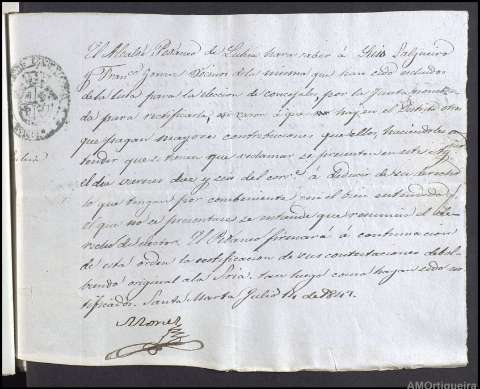 El Alcalde Pedaneo de hara saber á Luis Salgueiro
y Franco. Vecinos de la misma que han sido escluidos
de la lista para la eleccion de concejales por la Junta
da para rectificarla, en razon á que hay en el Distrito otros
que pagan mayores contribuciones que ellos, haciendoles en
tender que si tienen que reclamar se presenten en este
el dia viernes diez y seis del corre. á deducir de su derecho
lo que tengan por combeniente; en el bien entendido
el que no se presentare se entiende que renuncia el de
recho de elector. El Pedaneo firmará á continuacion
de esta orden la notificacion de sus contestaciones debol
biendo original a la Sria. tan luego como hayan sido no
tificados. Santa Marta Julio 14 de 1847.
AMOrtigueira